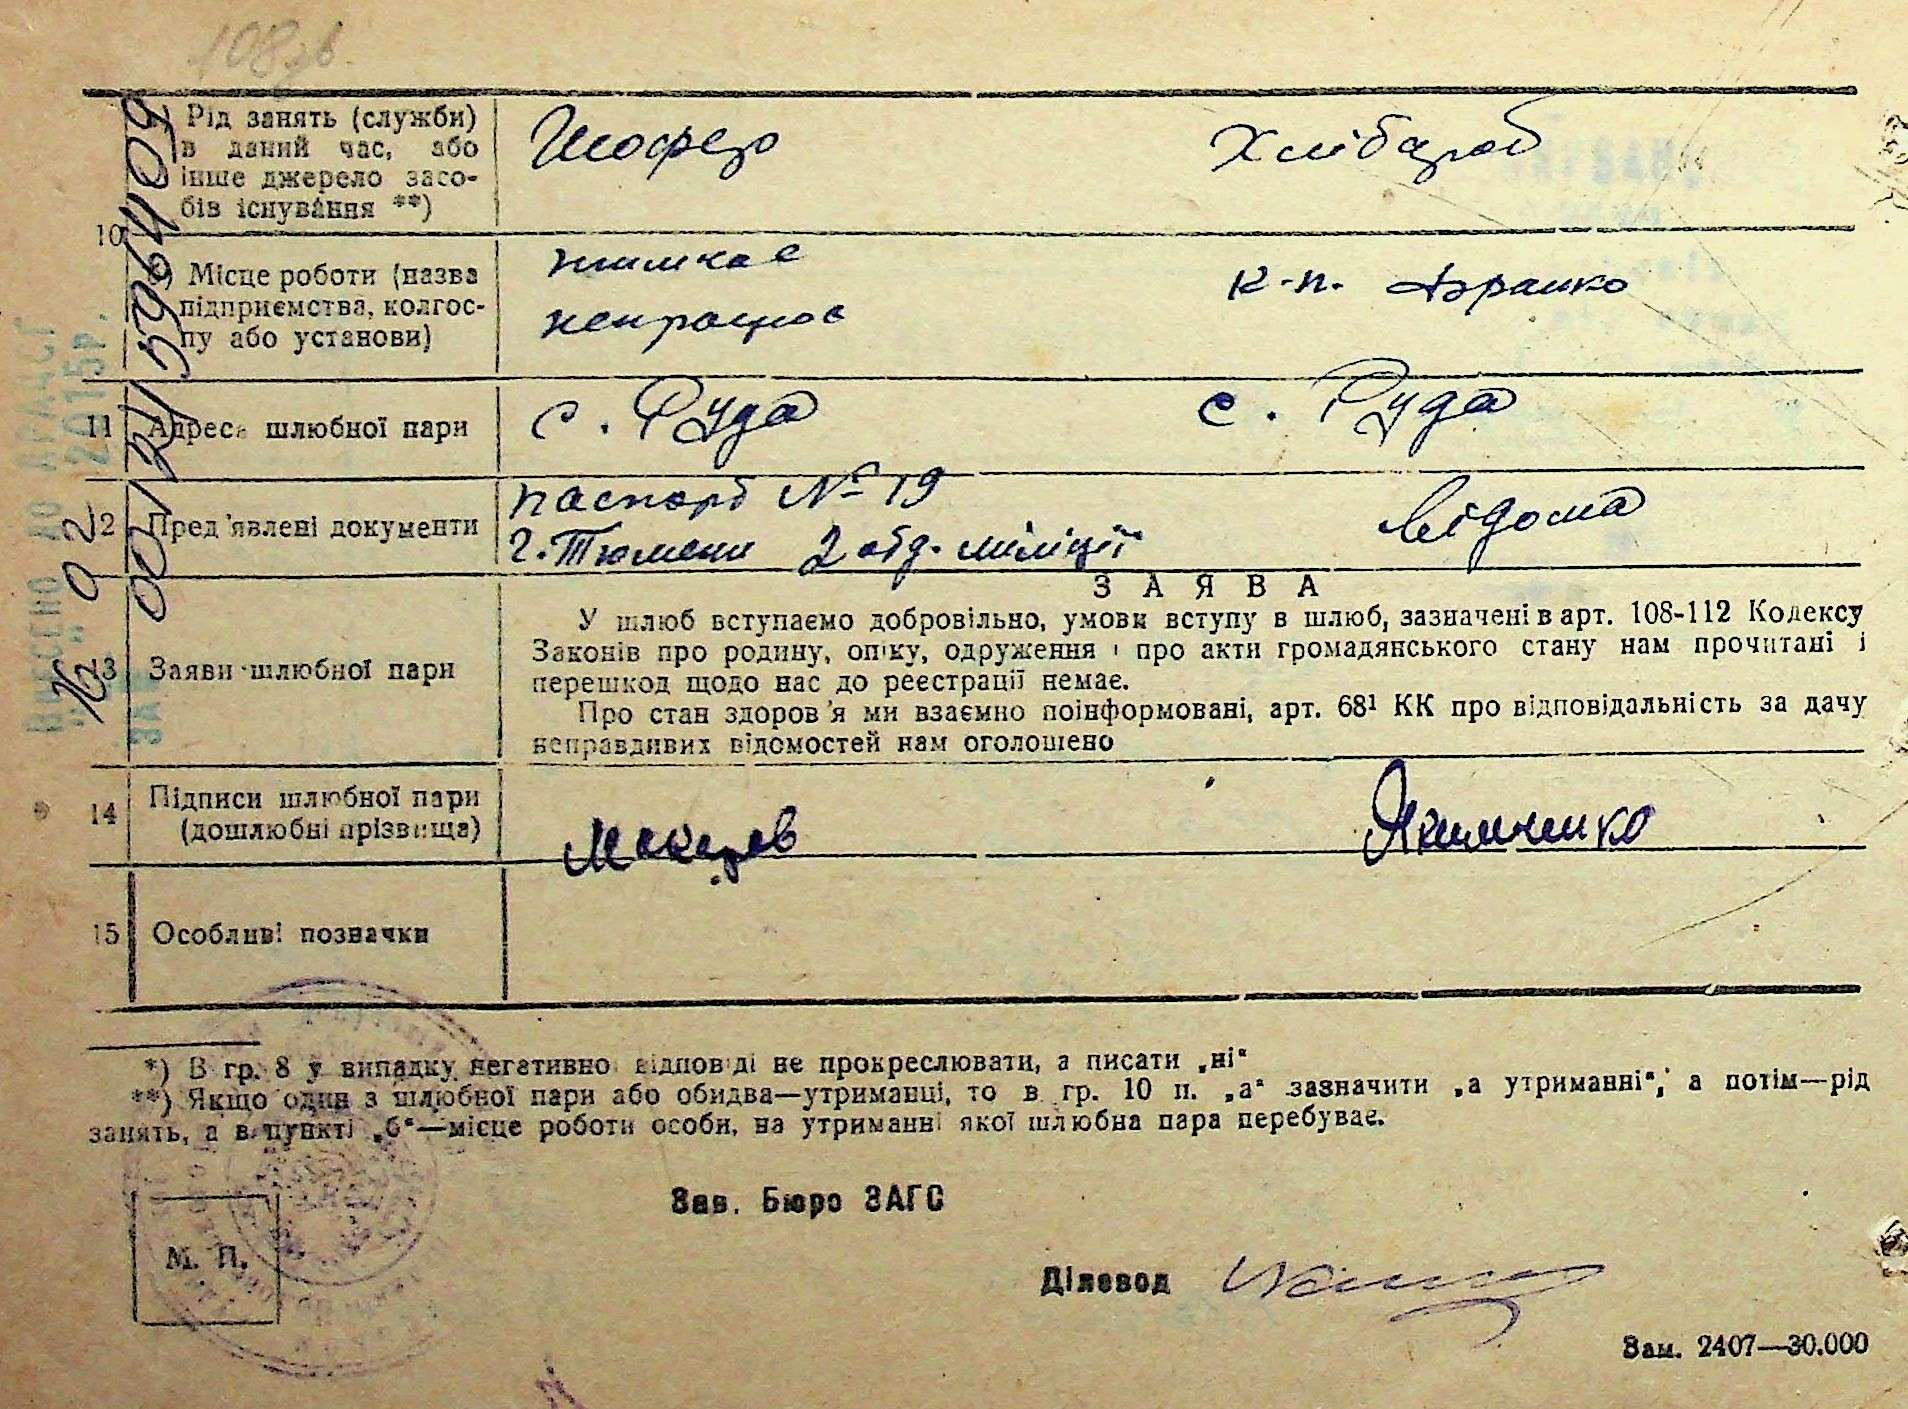 108зв.
Рід занять (служби)
в даний час, або
інше джерело засо-
бів існування **)
Шофер
Хлібароб
10
Місце роботи (назва
підприємства, колгос-
пу або установи)
непрацює
к-п. Франко
11 Адреса шлюбної пари
с. Руда
с. Руда
12 Пред'явлені документи
паспорт № 19
г. Тюмени 2 отд. міліції
відома
13 Заяви шлюбної пари
ЗАЯВА
У шлюб вступаємо добровільно, умови вступу в шлюб, зазначені в арт. 108-112 Кодексу
Законів про родину, опіку, одруження і про акти громадянського стану нам прочитані і
перешкод щодо нас до реєстрації немає.
Про стан здоров'я ми взаємно поінформовані, арт. 68¹ КК про відповідальність за дачу
неправдивих відомостей нам оголошено
14 Підписи шлюбної пари
(дошлюбні прізвища)
Якименко
15 Особливі позначки
*) В гр. 8 у випадку негативної відповіді не прокреслювати, а писати „ні“
**) Якщо один з шлюбної пари або обидва—утриманці, то в гр. 10 п. „а“ зазначити „а утриманні“, а потім—рід
занять, а в пункті „б“—місце роботи особи, на утриманні якої шлюбна пара перебуває.
Зав. Бюро ЗАГС
М. П.
Діловод
Зам. 2407—30.000
Внесено до ДРАЦСГ
16 02 2015р.
00124596409